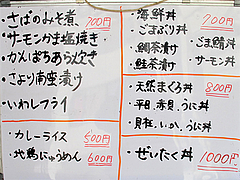 ・さばのみそ煮 700円
・サーモンかま塩焼き
・かんぱちあら炊き
・さより南蛮漬け
・いわしフライ
・カレーライス 500円
・地鶏にゅうめん 600円
・海鮮丼 700円
・ごまぶり丼
・鯛茶漬け ・ごま鯖丼
・鮭茶漬け ・サーモン丼
・天然まぐろ丼 800円
・平目、赤貝、うに丼
・貝柱、いか、うに丼
・ぜいたく丼 1000円